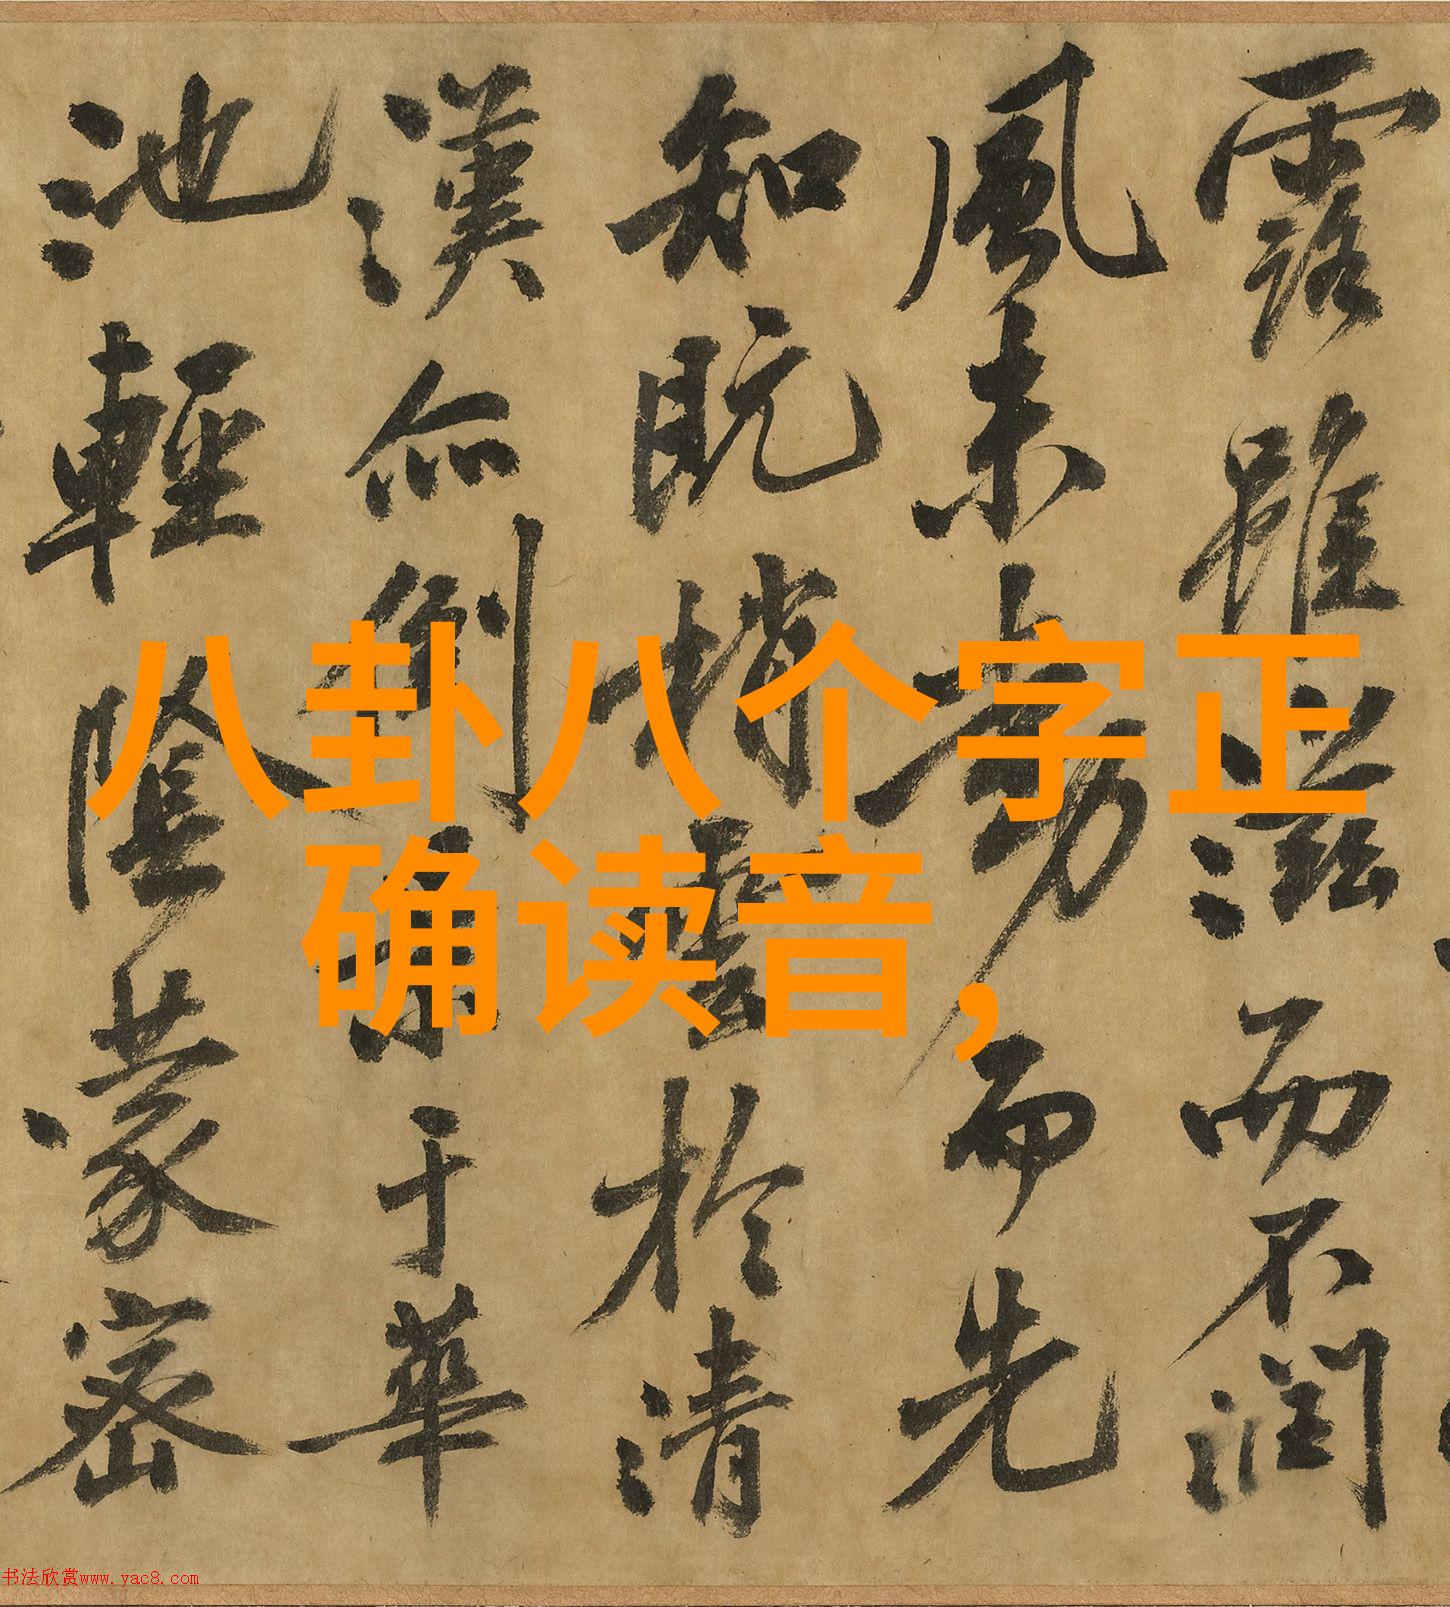 八卦八个字正
确读音,
露雖滋而不潤
風未動而先
知既梢雲於清
漢亦倒景于華
池輕陰蒙密
书法欣赏www.yac8.com